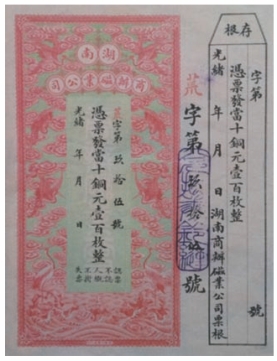 湖南
商辦礦業公司
荒字第玖拾伍號
憑票發當十銅元壹百枚整
光緒　年　月　日
認票不認人
概不掛失票
荒字第玖拾　號
存根
字第　號
憑票發當十銅元壹百枚整
光緒　年　月　日湖南商辦礦業公司票根